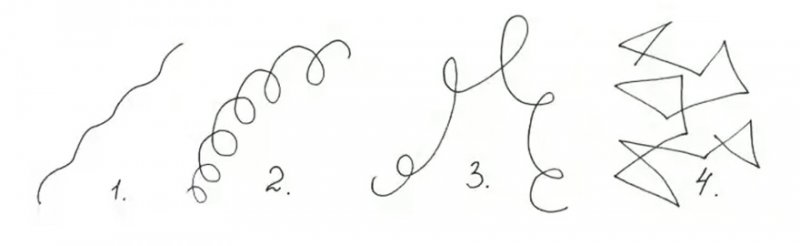 1. 2. 3. 4.